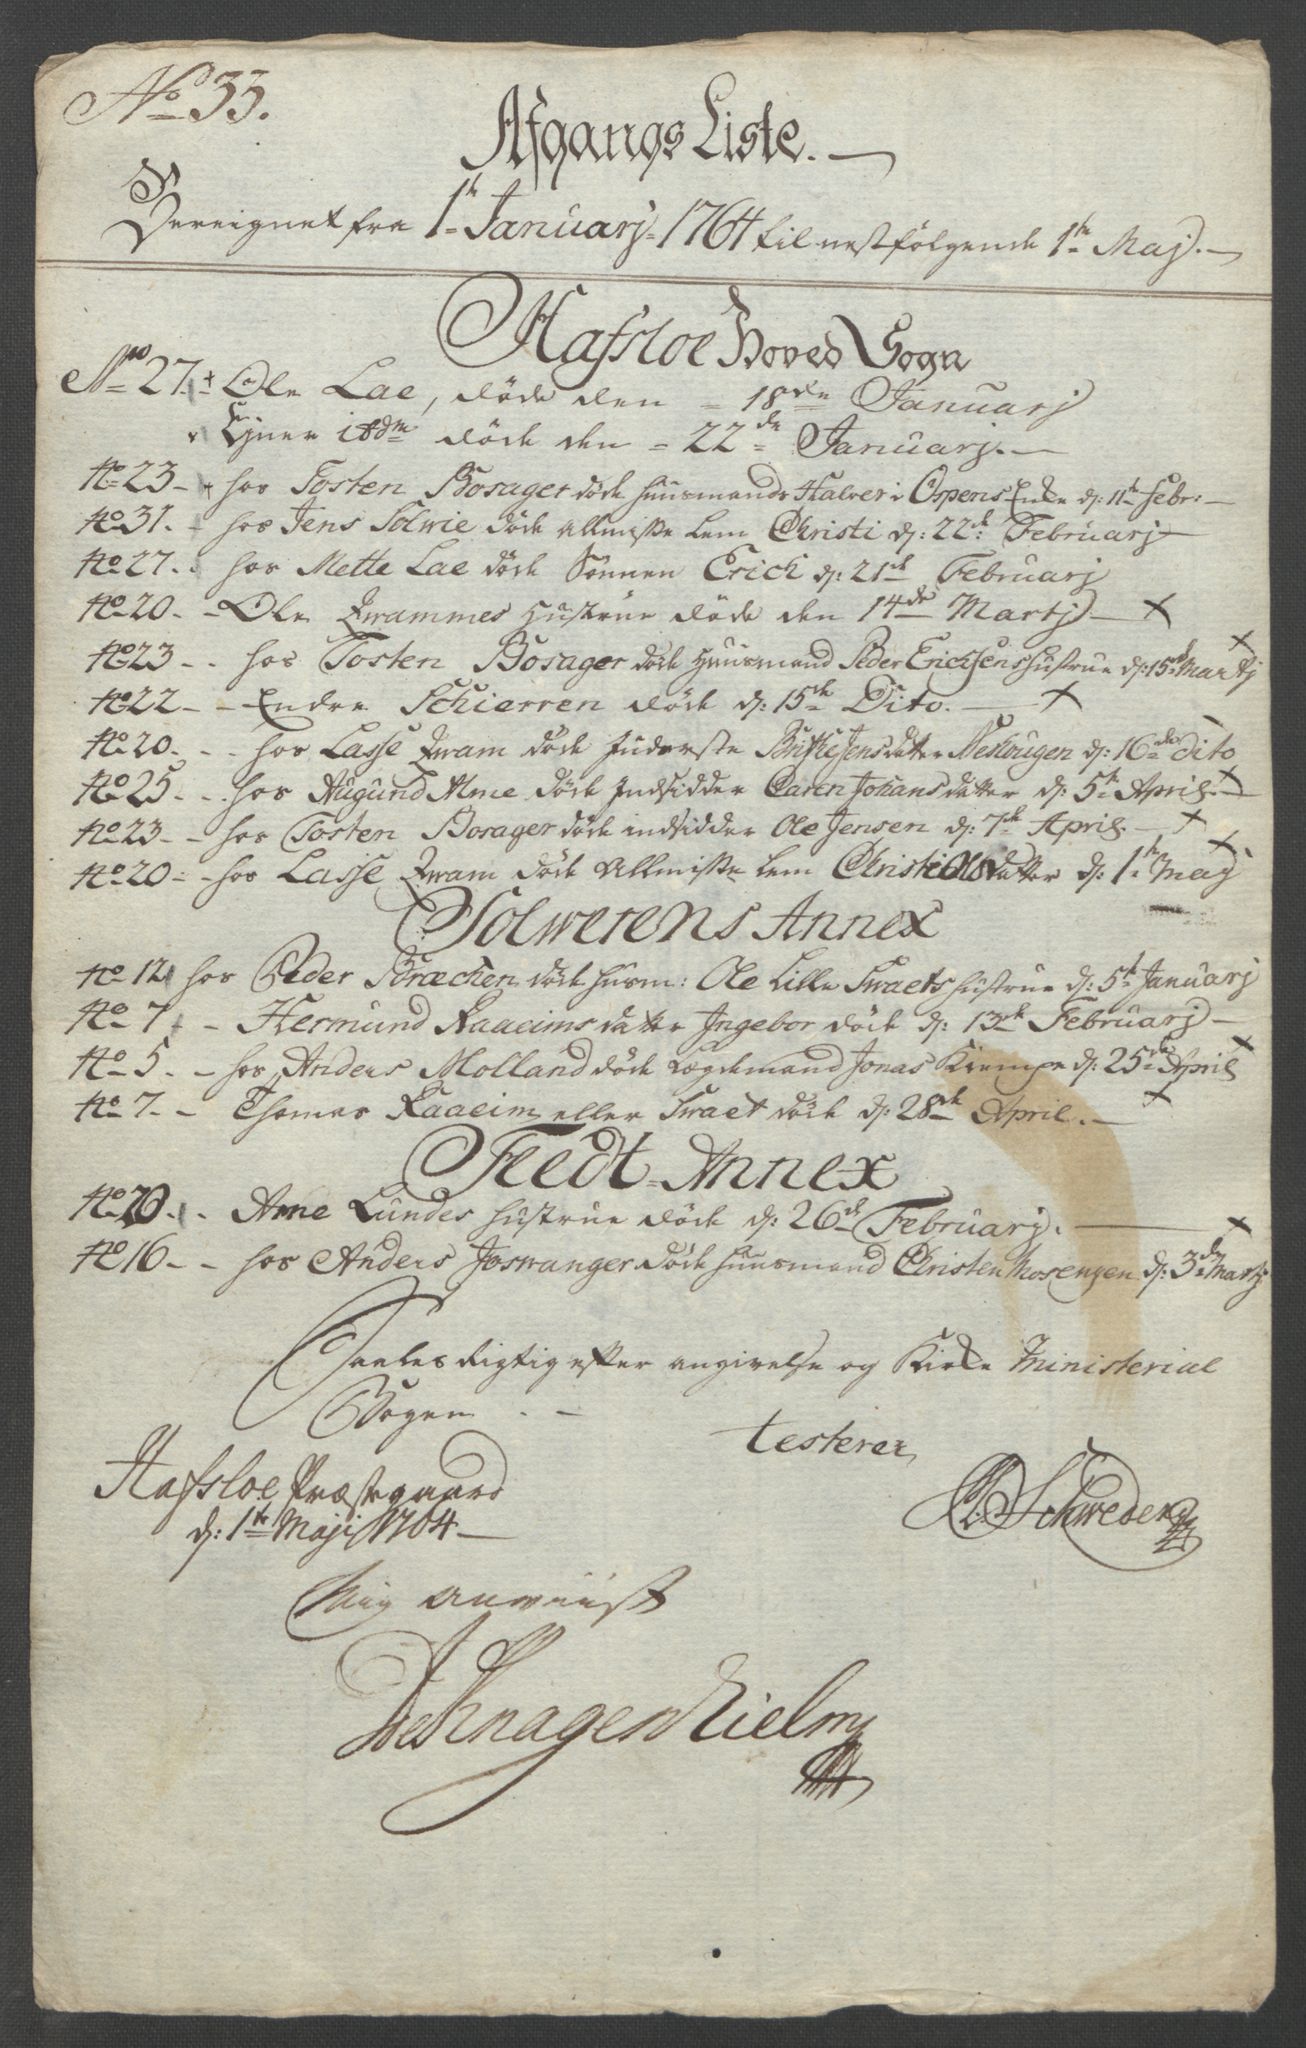 No 33.
Afgangs Liste.
Bereignet fra 1te Januarj 1764 til nestfølgende 1te Maj.
Hafsloe Hoved Sogn
No 27. + Ole Lae, døde den 18de Januarj
døde den 22de Januarj.
No 23 - hos Tosten Bosager døde Huusmands Halver i Ospens Enke d: 11te Febr:
No 31. - hos Jens Solwie døde allmisse Lem Christi d: 22de Februarj
No 27. hos Mette Lae døde Sønnen Erich d: 21de Februarj
No 20. - Ole Kwammes Hustrue døde den 14de Martj - x
No 23 - hos Tosten Bosager døde Huusmand Peder Erichsens Hustrue d: 15de Martj x
No 22 - Endre Schierren døde d: 15de Dito. - x
No 20. - hos Lasse Kwam døde Inderste Jensdatter d: 16de dito
No 25 - hos Augund Alme døde Indsidder Caren Johansdatter d: 5te April. x
No 23 - hos Tosten Bosager døde indsidder Ole Jensen d: 7de April. - x
No 20 - hos Lasse Kwam døde Allmisse Lem Christi Olsdatter d: 1te Maj x
Solwerens Annex
No 12 hos Peder Bræchen døde Husm: Ole Lille Swaets Hustrue d: 5te Januarj
No 7 - Hermund Raaeims datter Ingebor døde d: 13de Februarj
No 5. - hos Anders Molland døde Lægdemand Jonas Kiempe d: 25de April x
No 7. - Thomas Raaeim eller Swaet døde d: 28de April. - x
Feedt Annex
No 20. - Arne Lundes Hustrue døde d: 26de Februarj. - x
No 16 - hos Anders Joswanger døde Huusmand Christen Mosengen d: 3de Martj
Saaledes Rigtig efter angivelse og Kirke Ministerial
Bogen
testerer
Hafsloe Præstegaard
d: 1te Maji 1764
Schweder
Mig anviist
Knagenhielm